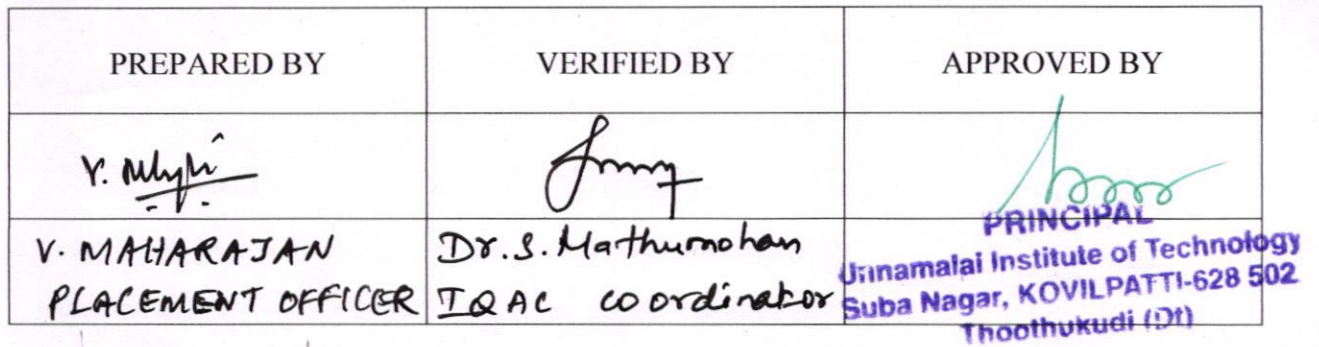 PREPARED BY VERIFIED BY APPROVED BY
V. MAHARAJAN Dr. S. Mathumohan
PLACEMENT OFFICER IQAC coordinator
PRINCIPAL
Unnamalai Institute of Technology
Suba Nagar, KOVILPATTI-628 502
Thoothukudi (Dt)